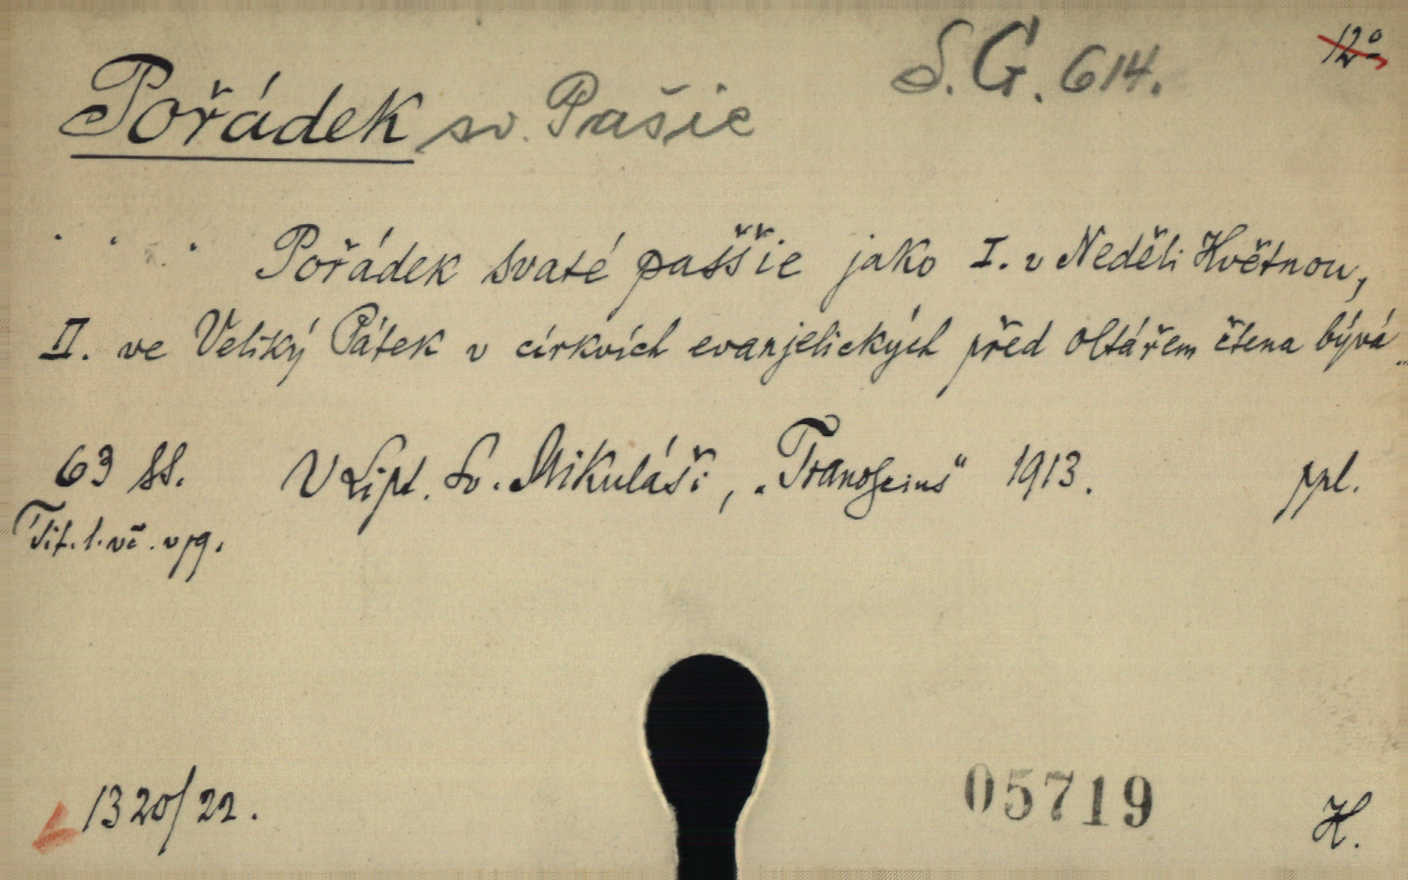 S.G. 614.
12°
Pořádek sv. Pašie
. . . Pořádek svaté paššie jako I. v Neděli Květnou,
II. ve Veliký Pátek v církvích evanjelických před oltářem čtena bývá..
63 ss. V Lipt. Sv. Mikuláši, „Tranoscius“ 1913. ppl.
Tit. l. vč. v pg.
1320/22.
05719
H.